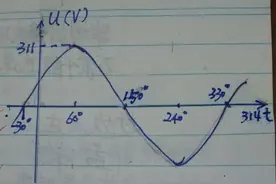 U(V)
311
-30°
60°
150°
240°
330°
314t